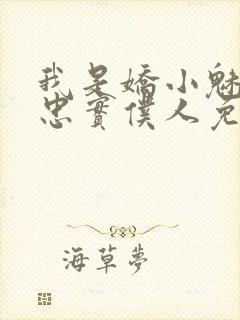 我是嬌小魅
忠實僕人免
海草夢